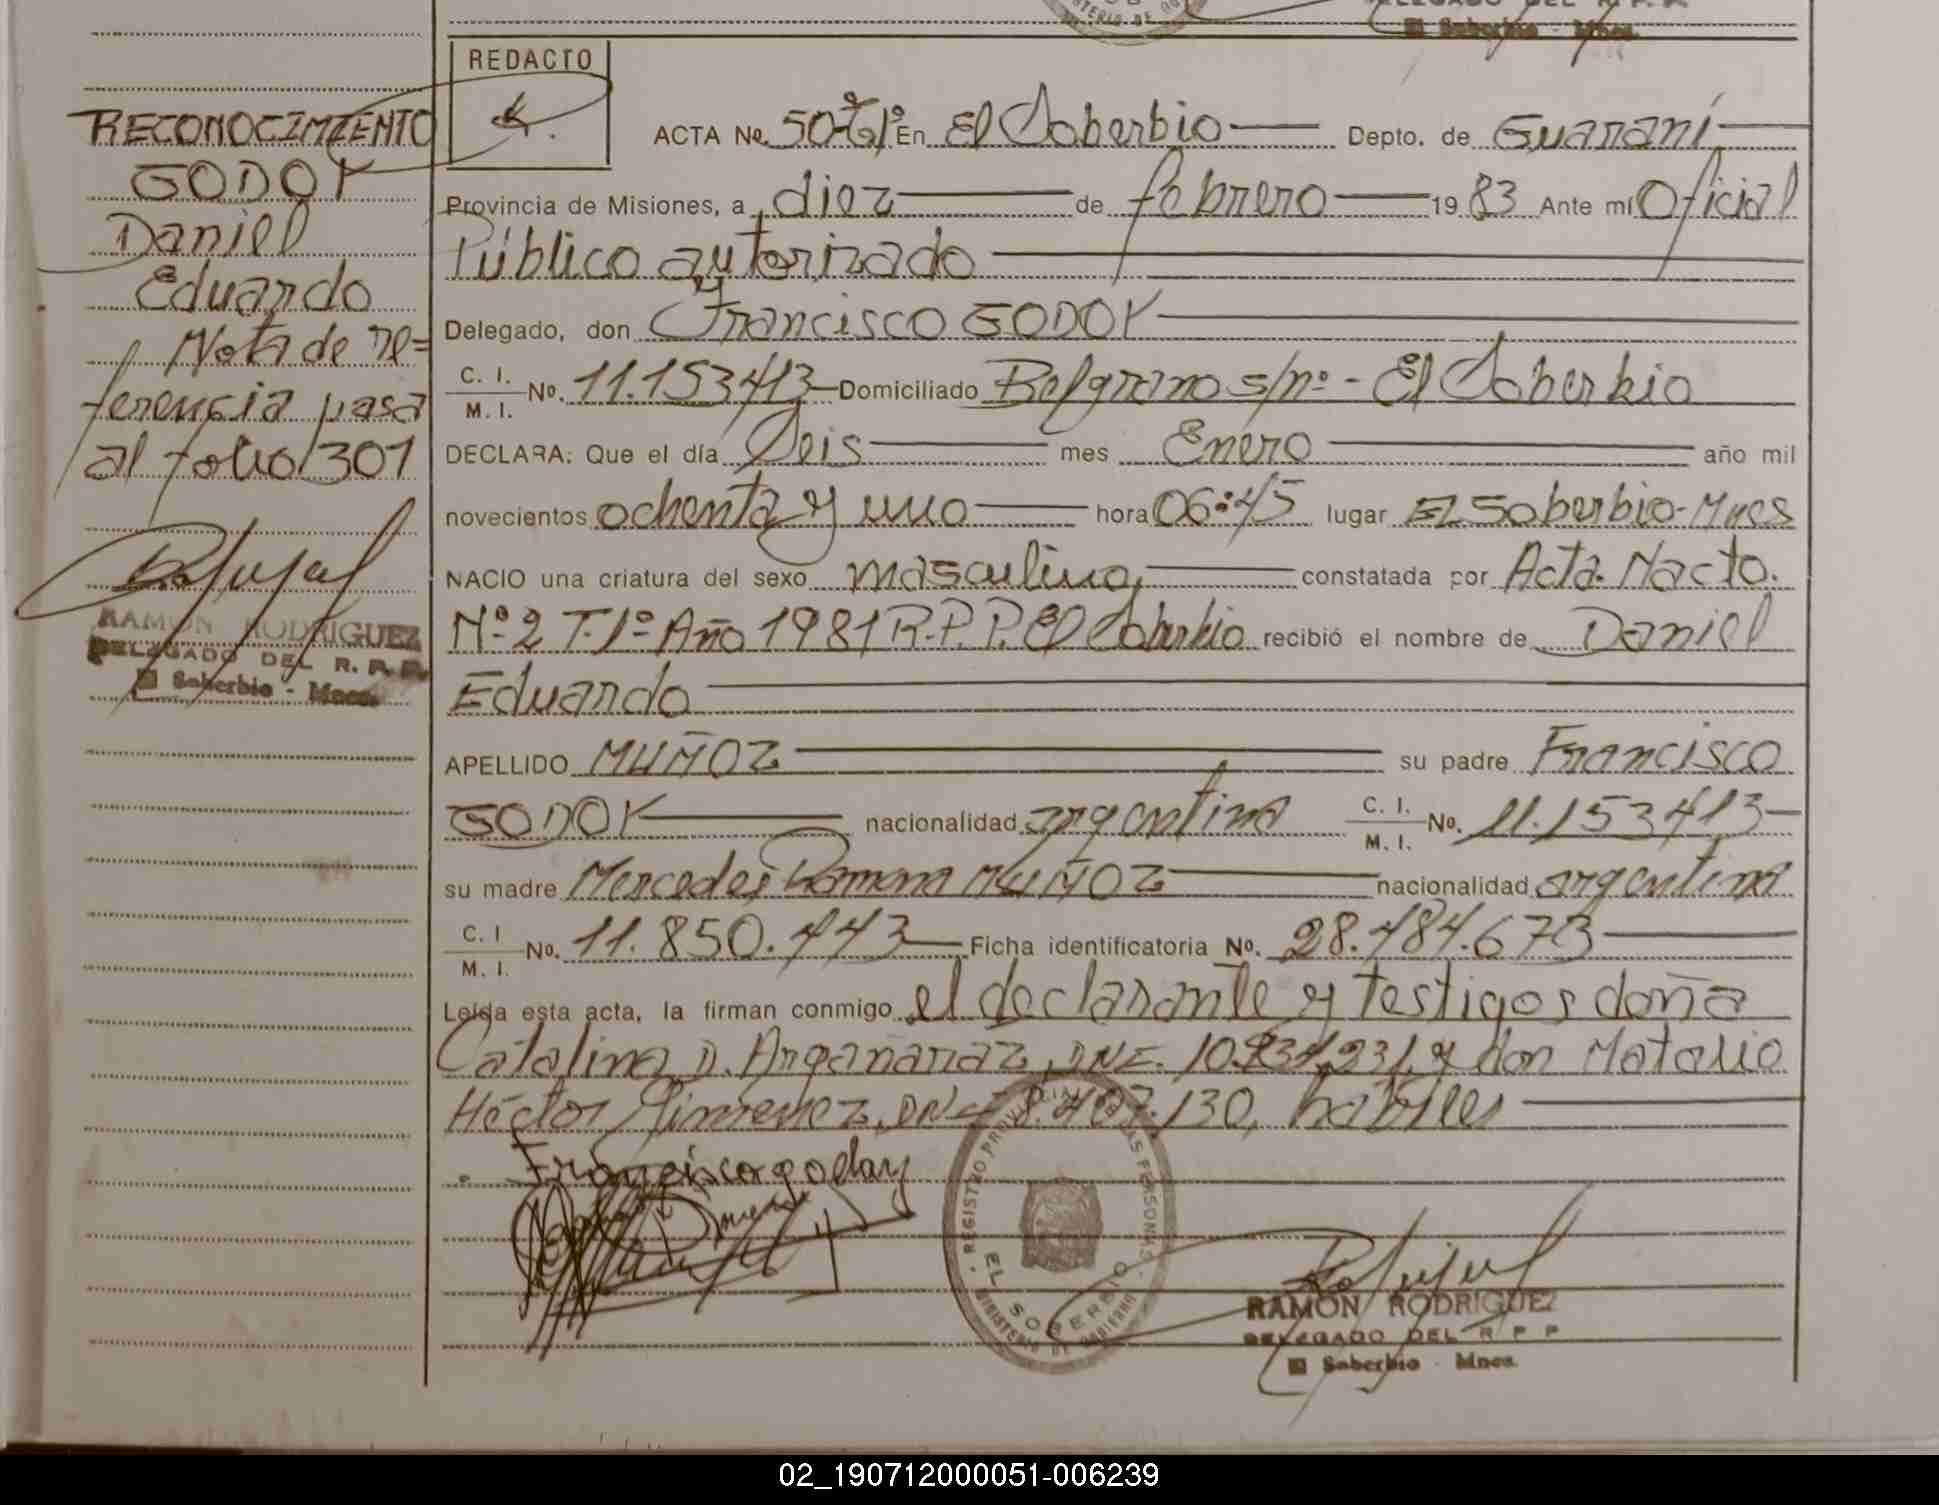 El Soberbio - Mnes.
RECONOCIMIENTO
GODOY
Daniel
Eduardo
Nota de re=
ferencia pasa
al folio 301
RAMON RODRIGUEZ
DELEGADO DEL R. P. P.
El Soberbio - Mnes.
REDACTO
ACTA No. 50-T1º En El Soberbio Depto. de Guaraní
Provincia de Misiones, a diez de febrero 1983 Ante mí Oficial
Público autorizado
Delegado, don Francisco GODOY
C. I. M. I. No. 11.153413 Domiciliado Belgrano s/nº - El Soberbio
DECLARA: Que el día Seis mes Enero año mil
novecientos ochenta y uno hora 06:45 lugar El Soberbio-Mnes
NACIO una criatura del sexo masculino, constatada por Acta. Nacto.
Nº 2 T. 1º Año 1981 R.P.P. El Soberbio recibió el nombre de Daniel
Eduardo
APELLIDO MUÑOZ su padre Francisco
GODOY nacionalidad argentina C. I. M. I. No. 11.153413
su madre Mercedes Ramona MUÑOZ nacionalidad argentina
C. I M. I. No. 11.850.443 Ficha identificatoria No. 28.484.673
Leída esta acta, la firman conmigo el declarante y testigos doña
Catalina D. Argañaraz, DNI. y don Natalio
Héctor Gimenez, DNI 8.407.130, hábiles
Francisco goday
REGISTRO PROVINCIAL DE LAS PERSONAS
EL SOBERBIO
MINISTERIO DE GOBIERNO
RAMON RODRIGUEZ
DELEGADO DEL R P P
El Soberbio - Mnes.
02_190712000051-006239